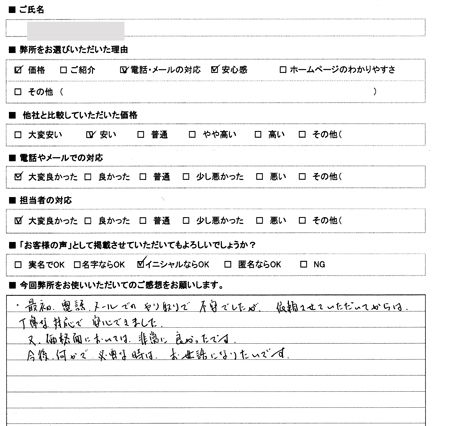 ■ ご氏名
■ 弊所をお選びいただいた理由
☑ 価格 □ ご紹介 ☑ 電話・メールの対応 ☑ 安心感 □ ホームページのわかりやすさ
□ その他 ( )
■ 他社と比較していただいた価格
□ 大変安い ☑ 安い □ 普通 □ やや高い □ 高い □ その他(
■ 電話やメールでの対応
☑ 大変良かった □ 良かった □ 普通 □ 少し悪かった □ 悪い □ その他(
■ 担当者の対応
☑ 大変良かった □ 良かった □ 普通 □ 少し悪かった □ 悪い □ その他(
■ 「お客様の声」として掲載させていただいてもよろしいでしょうか？
□ 実名でOK □ 名字ならOK ☑ イニシャルならOK □ 匿名ならOK □ NG
■ 今回弊所をお使いいただいてのご感想をお願いします。
・最初、電話、メールでのやり取りで不安でしたが、依頼させていただいてからは、
丁寧な対応で安心できました。
又、価格面においては、非常に良かったです。
今後、何かで必要な時は、お世話になりたいです。